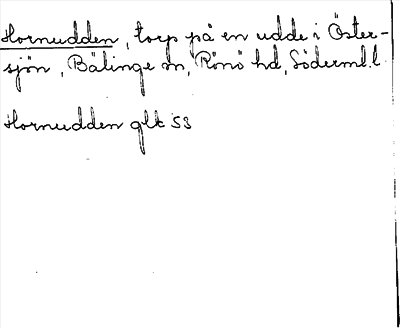 Hornudden, torp på en udde i Öster-
sjön, Bälinge sn, Rönö hd, Söderml. l.
Hornudden glk 53